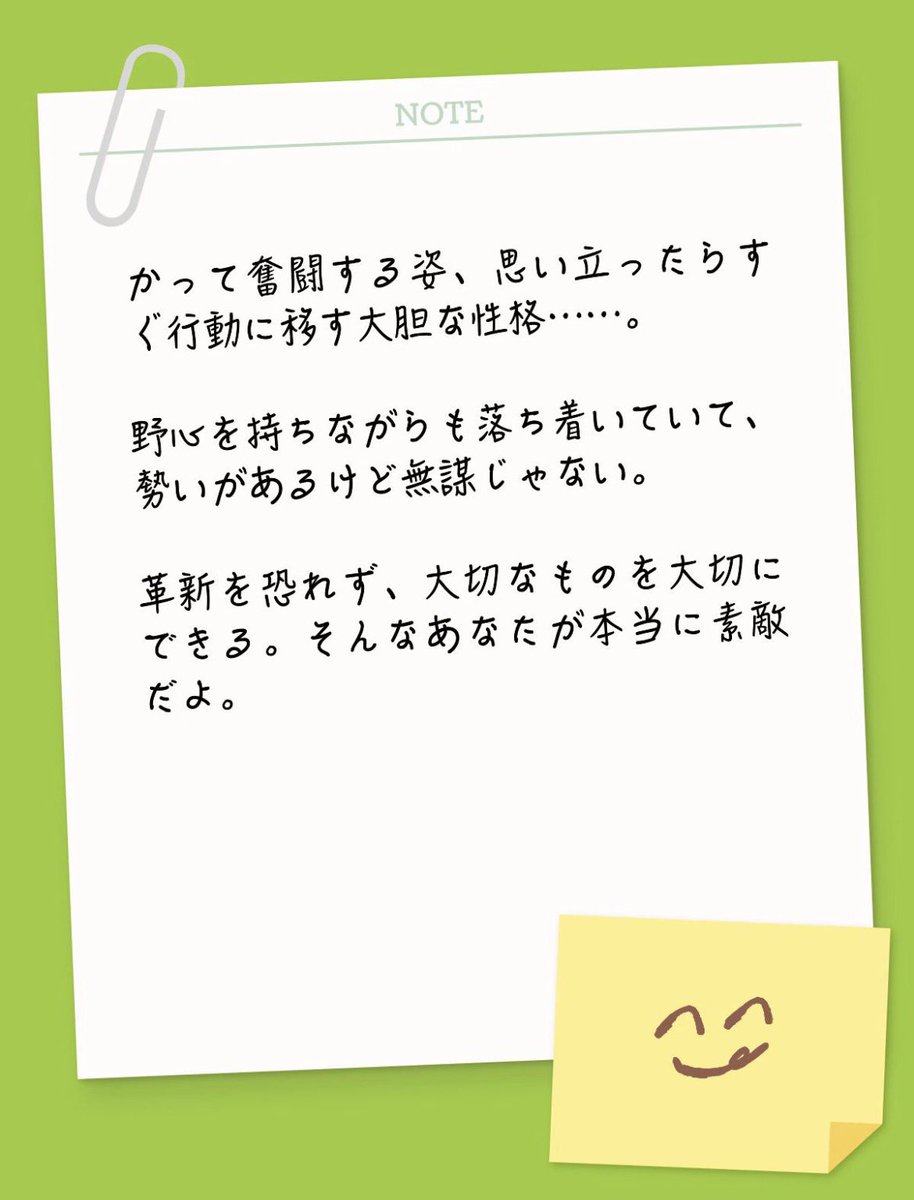 NOTE
かって奮闘する姿、思い立ったらす
ぐ行動に移す大胆な性格……。
野心を持ちながらも落ち着いていて、
勢いがあるけど無謀じゃない。
革新を恐れず、大切なものを大切に
できる。そんなあなたが本当に素敵
だよ。